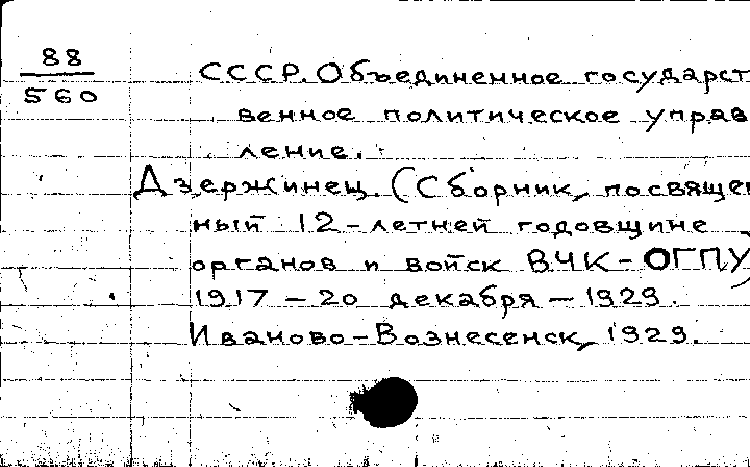 88
560
СССР. Объединенное государст
венное политическое управ
ление.
Дзержинец. (Сборник, посвящен
ный 12-летней годовщине
органов и войск ВЧК-ОГПУ)
1917 - 20 декабря - 1929.
Иваново-Вознесенск, 1929.